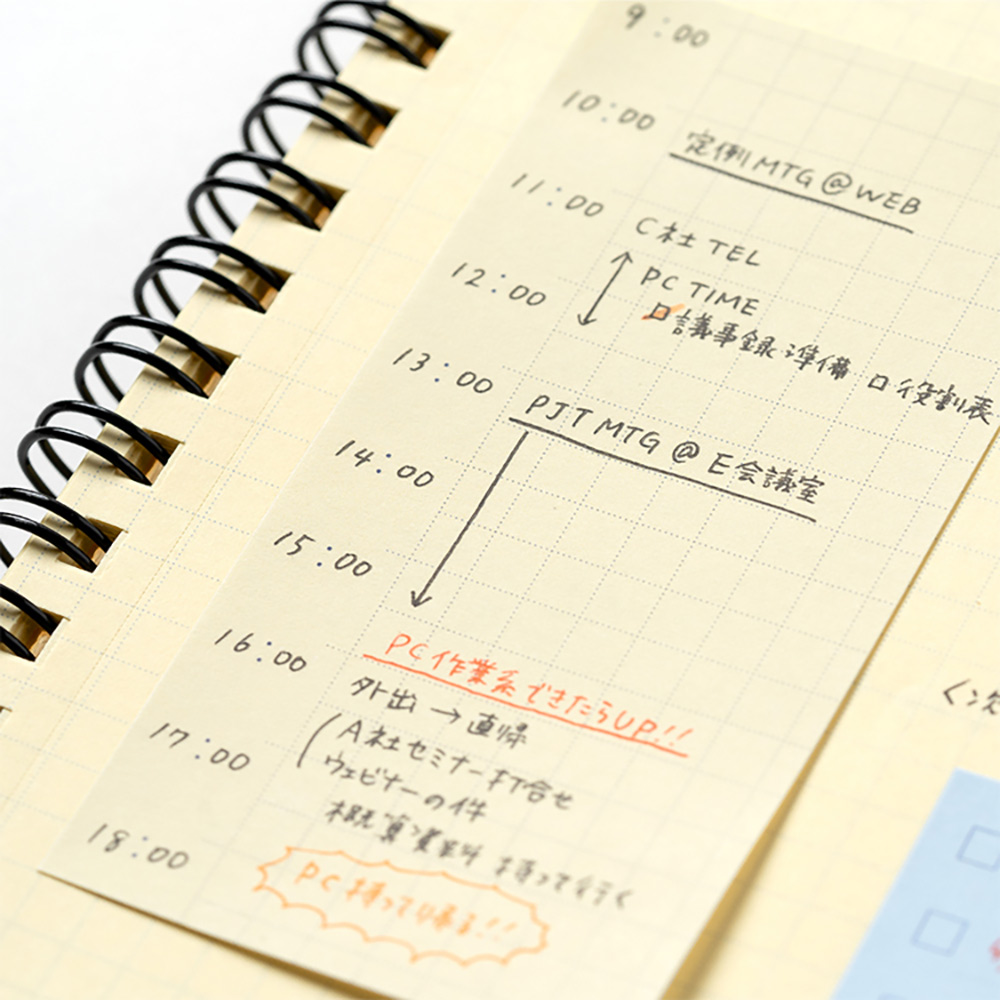 9:00
10:00
定例MTG@WEB
11:00
C社 TEL
12:00
PC TIME
口議事録準備 口役割表
13:00
PJT MTG @ E会議室
14:00
15:00
16:00
PC作業系できたらUP!!
外出→直帰
17:00
A社セミナー打合せ
ウェビナーの件
概算資料 持って行く
18:00
PC持って帰る!!
<次